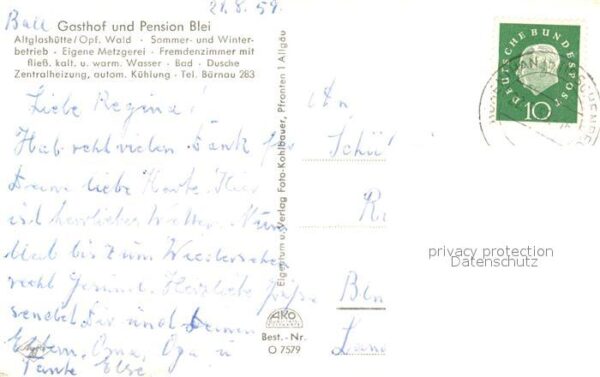 21.8.59.
Gasthof und Pension Blei
Altglashütte/Opf. Wald · Sommer- und Winter-
betrieb · Eigene Metzgerei · Fremdenzimmer mit
fließ. kalt. u. warm. Wasser · Bad · Dusche
Zentralheizung, autom. Kühlung · Tel. Bärnau 283
Liebe Regina!
Hab recht vielen Dank für
Deine liebe Karte. Hier
ist herrliches Wetter. Nun
bis zum Wiedersehen
recht Herzliche Grüße
sendet Dir und Deinen
Eltern, Oma, Opa u
Tante Else.
Eigentum u. Verlag Foto-Kohlbauer, Pfronten 1 Allgäu
AKO
Best.-Nr.
O 7579
An
Schül
DEUTSCHE BUNDESPOST
10
privacy protection
Datenschutz